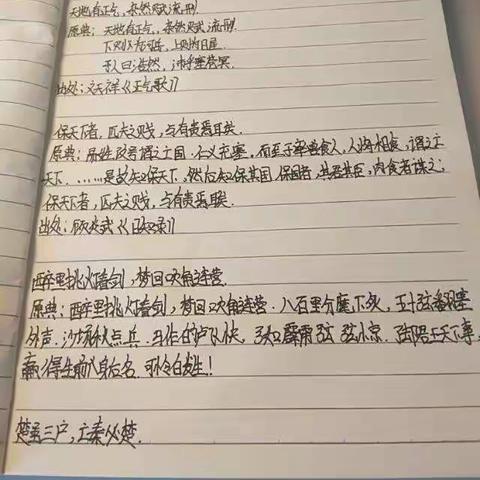 天地有正气，杂然赋流形
原典：天地有正气，杂然赋流形.
下则为河岳，上则为日星.
于人曰浩然，沛乎塞苍冥.
出处：文天祥《正气歌》
保天下者，匹夫之贱，与有责焉耳矣.
原典：易姓改号谓之亡国.仁义充塞，而至于率兽食人，人将相食，谓之亡
天下. ……是故知保天下，然后知保其国.保国者，其君其臣，肉食者谋之；
保天下者，匹夫之贱，与有责焉耳矣.
出处：顾炎武《日知录》
醉里挑灯看剑，梦回吹角连营.
原典：醉里挑灯看剑，梦回吹角连营.八百里分麾下炙，五十弦翻塞
外声.沙场秋点兵.马作的卢飞快，弓如霹雳弦惊.
赢得生前身后名.可怜白发生！
楚虽三户，亡秦必楚.